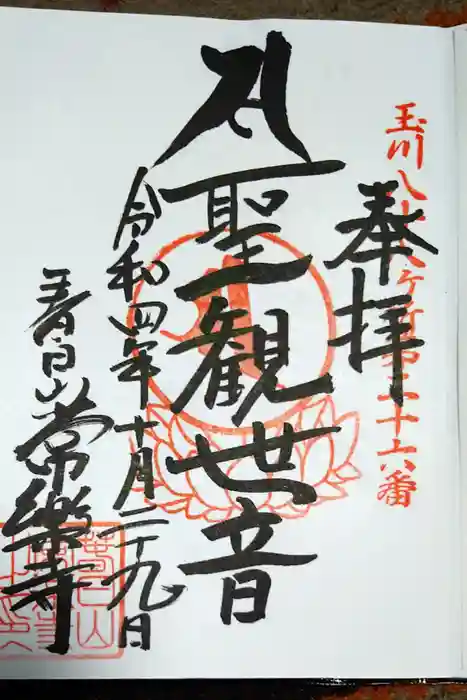 玉川八十八ヶ所第二十六番
奉拝
聖観世音
令和四年十月二十九日
春日山常樂寺